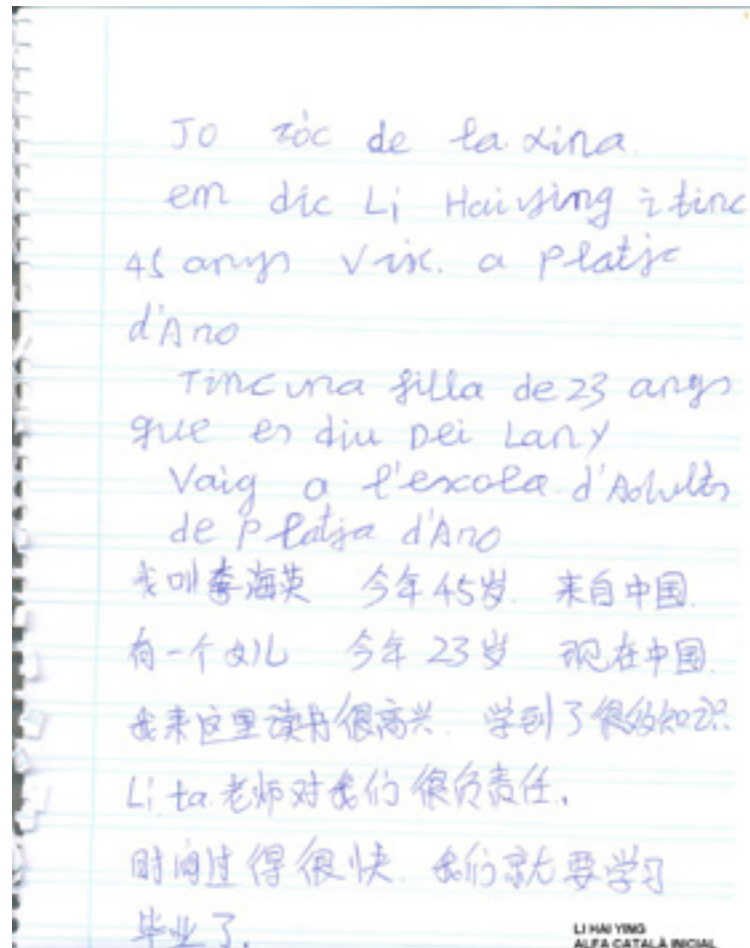 Jo sóc de la xina
em dic Li Haiying i tinc
45 anys Visc. a Platje
d'Aro
Tinc una filla de 23 anys
que es diu Dei Lany
Vaig a l'escola d'Adults
de Platja d'Aro
我叫李海英 今年45岁. 来自中国.
有一个女儿 今年23岁 现在中国.
我来这里读书很高兴. 学到了很多知识.
Lita老师对我们很负责任.
时间过得很快. 我们就要学习
毕业了.
LI HAI YING
ALFA CATALÀ INICIAL